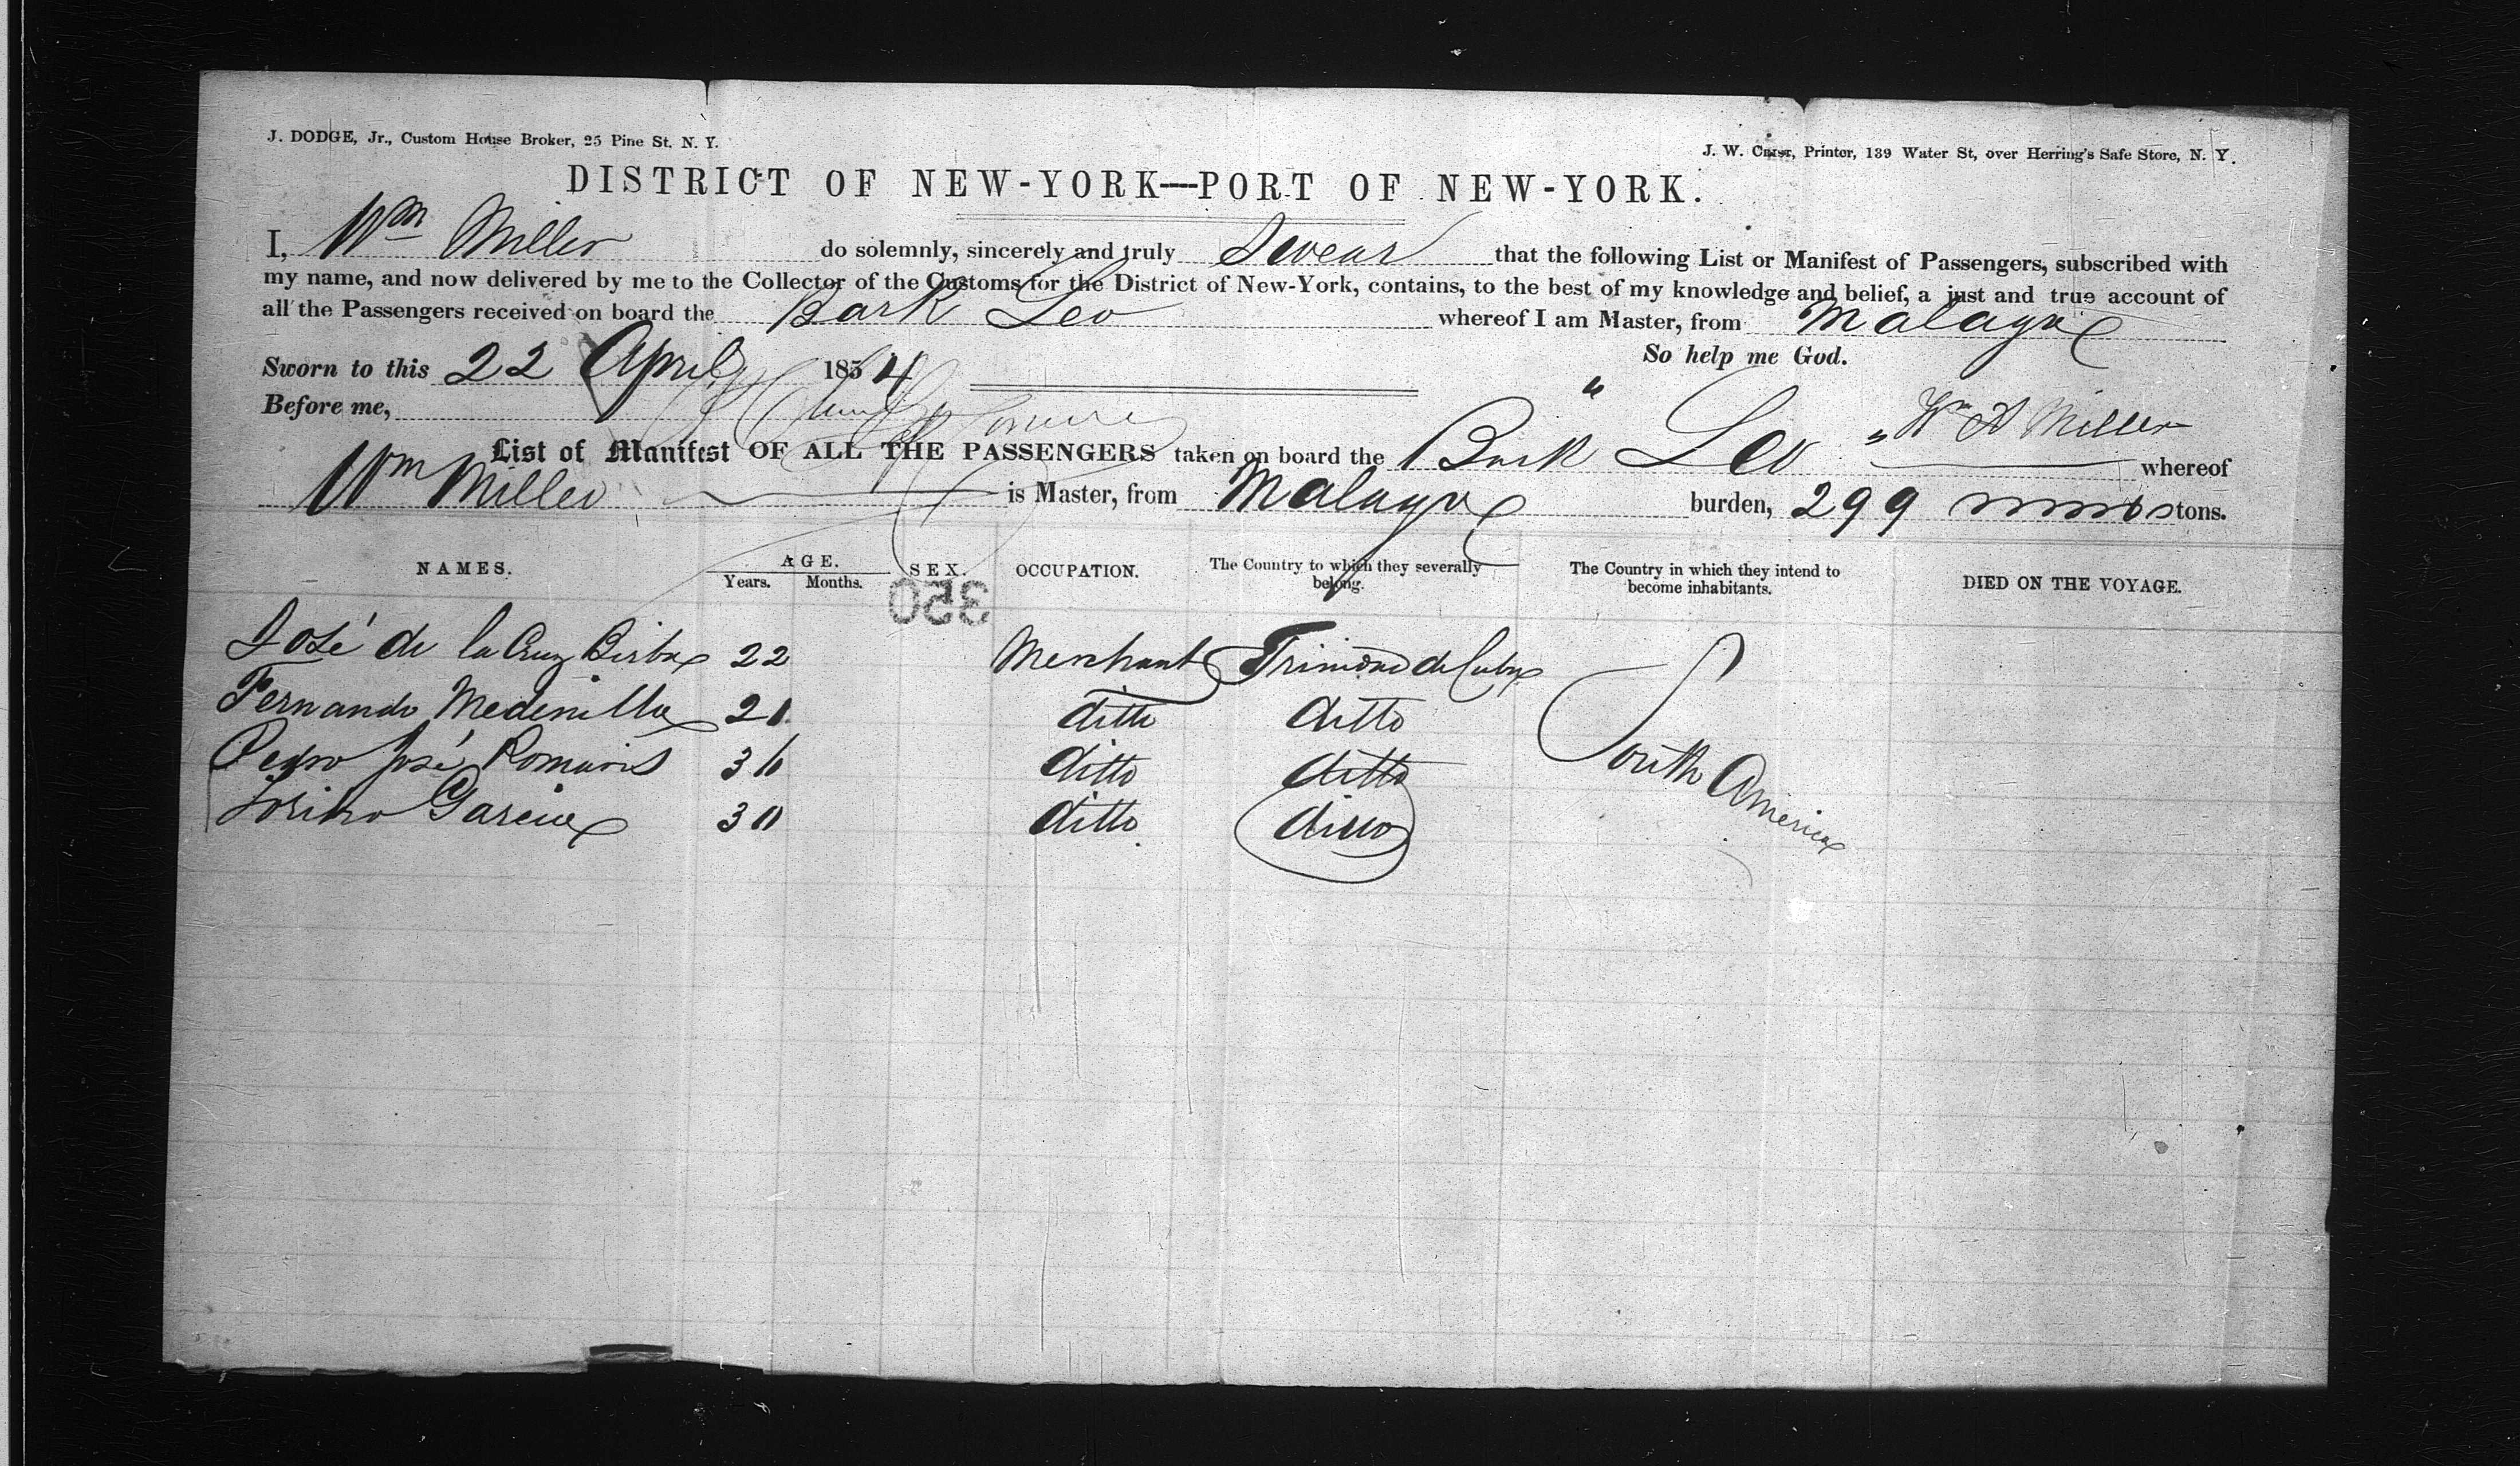 J. DODGE, Jr., Custom House Broker, 25 Pine St. N. Y.
J. W. Printer, 139 Water St, over Herring's Safe Store, N. Y.
DISTRICT OF NEW-YORK—PORT OF NEW-YORK.
I, Wm Miller do solemnly, sincerely and truly Swear that the following List or Manifest of Passengers, subscribed with
my name, and now delivered by me to the Collector of the Customs for the District of New-York, contains, to the best of my knowledge and belief, a just and true account of
all the Passengers received on board the Bark Leo whereof I am Master, from Malaga
So help me God.
Sworn to this 22 April 1854
Before me,
Wm A Miller
List of Manifest OF ALL THE PASSENGERS taken on board the Bark "Leo" whereof
Wm Miller is Master, from Malaga burden, 299 tons.
NAMES. AGE. Years. Months. SEX. OCCUPATION. The Country to which they severally belong. The Country in which they intend to become inhabitants. DIED ON THE VOYAGE.
350
José de la Cruz 22 Merchant Trinidad de Cuba
Fernando Medinilla 21 ditto ditto
Pedro José 36 ditto ditto
Garcia 30 ditto ditto
South America